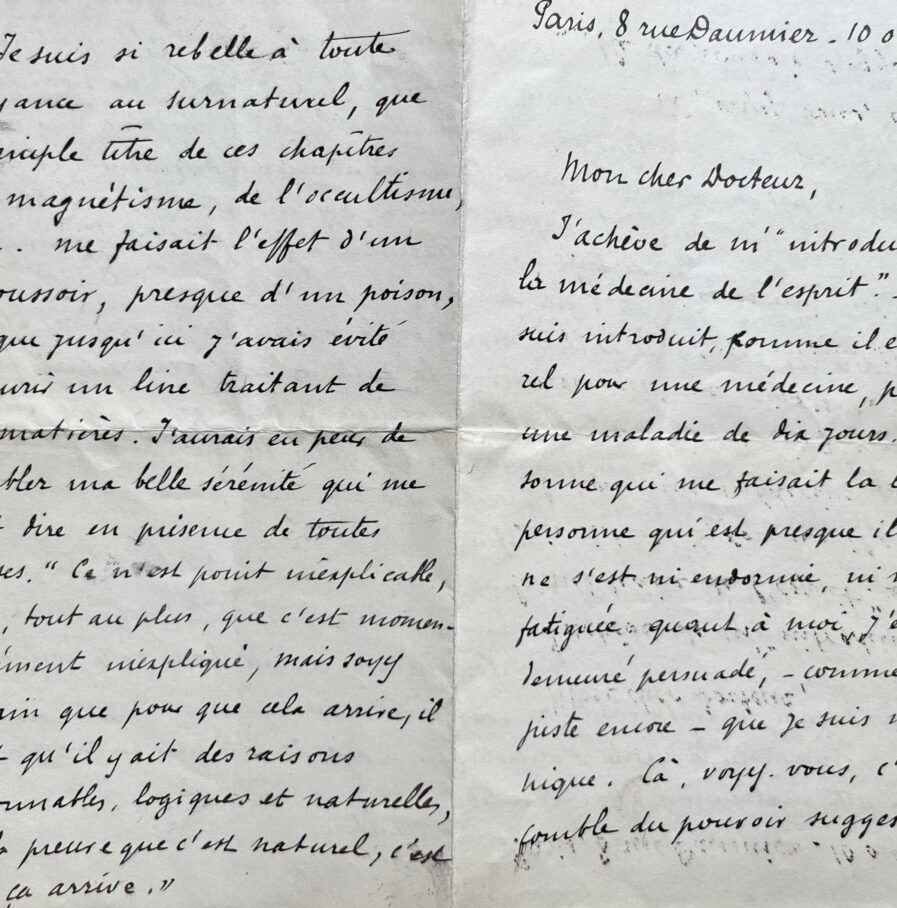 Je suis si rebelle à toute
yance au surnaturel, que
simple titre de ces chapitres
magnétisme, de l'occultisme,
. me faisait l'effet d'un
oussoir, presque d'un poison,
que jusqu'ici j'avais évité
ouvrir un livre traitant de
matières. J'aurais eu peur de
bler ma belle sérénité qui me
t dire en présence de toutes
ses. "Ce n'est point inexplicable,
, tout au plus, que c'est momen-
ément inexpliqué, mais soyz
ain que pour que cela arrive, il
t qu'il y ait des raisons
onnables, logiques et naturelles,
preuve que c'est naturel, c'est
ça arrive."
Paris, 8 rue Daumier - 10 o
Mon cher Docteur,
J'achève de m'"introdu
la médecine de l'esprit". -
suis introduit, comme il e
rel pour une médecine, p
une maladie de dix jours.
sonne qui me faisait la l
personne qui est presque il
ne s'est ni endormie, ni
fatiguée quant à moi j'é
demeuré persuadé, - comme
piste encore - que je suis
nique. Çà, voyz-vous, c'
comble du pouvoir sugges